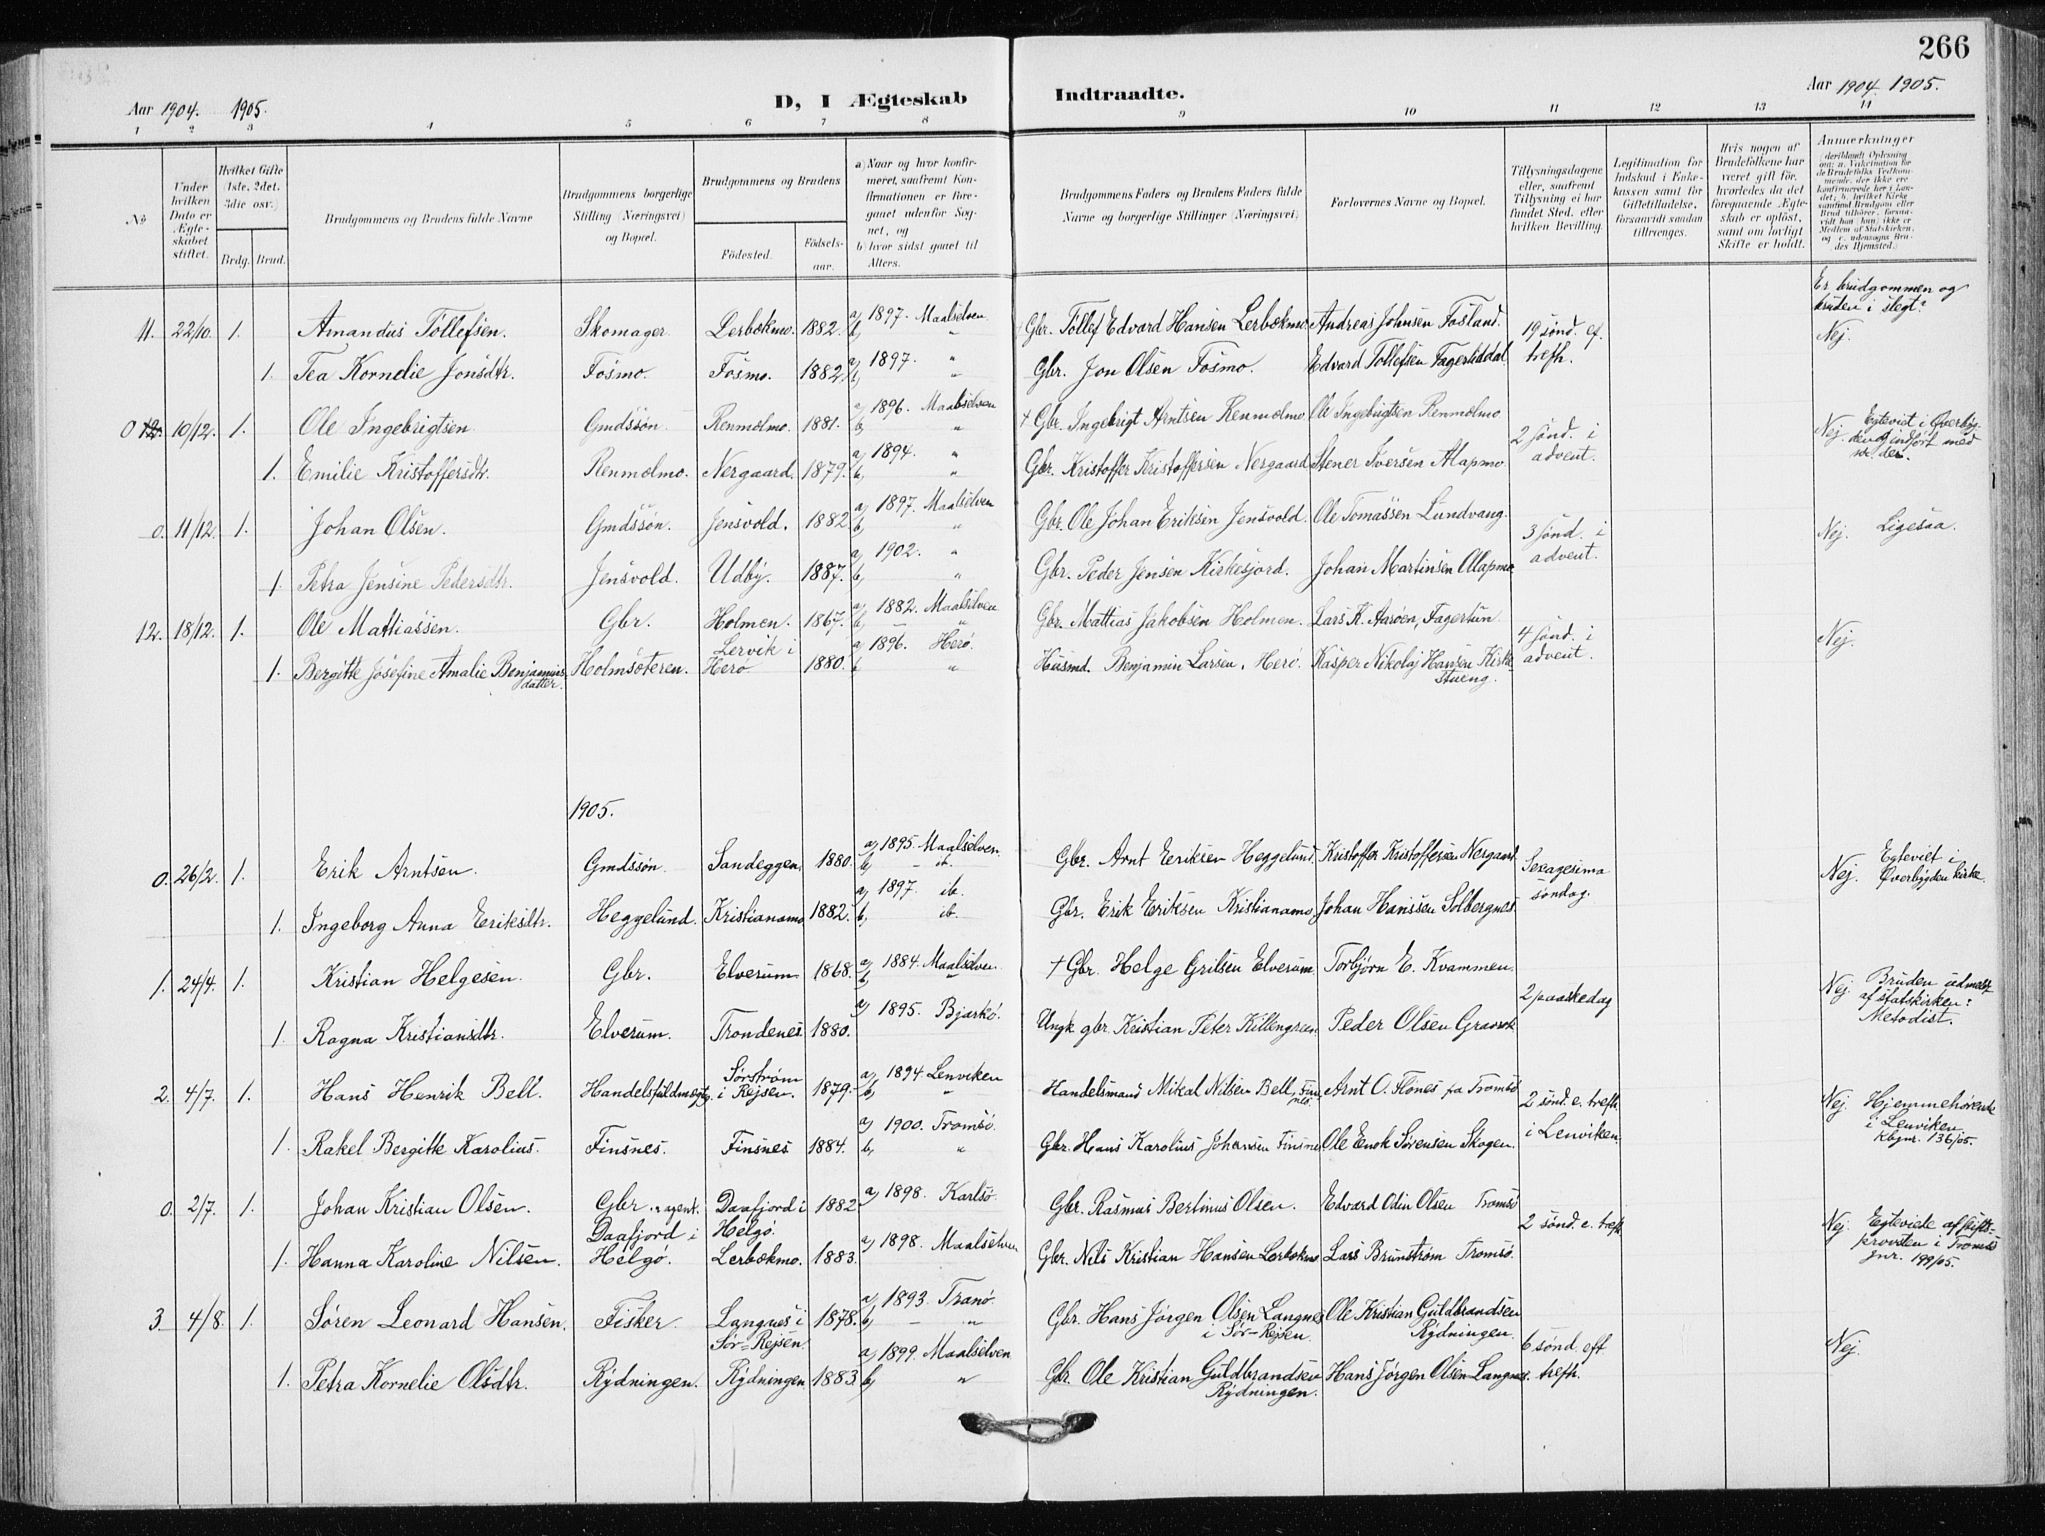 266
Aar 1904. 1905.
D, I Ægteskab Indtraadte.
Aar 1904. 1905.
1 2 3 4 5 6 7 8 9 10 11 12 13 14
No
Under hvilken Dato er Ægteskabet stiftet.
Hvilket Gifte (1ste, 2det, 3die osv.)
Brdg. Brud.
Brudgommens og Brudens fulde Navne
Brudgommens borgerlige Stilling (Næringsvei) og Bopæl.
Brudgommens og Brudens
Födested.
Födselsaar.
a) Naar og hvor konfirmeret, saafremt Konfirmationen er foregaaet udenfor Sognet, og
b) hvor sidst gaaet til Alters.
Brudgommens Faders og Brudens Faders fulde Navne og borgerlige Stillinger (Næringsvei)
Forlovernes Navne og Bopæl.
Tillysningsdagene eller, saafremt Tillysning ei har fundet Sted, efter hvilken Bevilling.
Legitimation for Indskud i Enkekassen samt for Giftetilladelse, forsaavidt saadan tiltrænges.
Hvis nogen af Brudefolkene har været gift för, hvorledes da det foregaaende Ægteskab er oplöst, samt om lovligt Skifte er holdt.
Anmærkninger
Er brudgommen og bruden i slegt?
11. 22/10. 1. Amandus Tollefsen. Skomager. Lerbækmo. 1882. a) 1897. Maalselven b) " Gbr. Tollef Edvard Hansen Lerbækmo. Andreas Johnsen Fosland. 19 sönd. ef. Nej.
1. Tea Kornelie Jonsdtr. Fosmo. Fosmo. 1882. a) 1897 " b) " Gbr. Jon Olsen Fosmo. Edvard Tollefsen Fagerliddal. trefh.
0 12. 10/12. 1. Ole Ingebrigtsen Gmdssön. Renmælmo. 1881. a) 1896. Maalselven b) " + Gbr. Ingebrigt Arntsen Renmælmo. Ole Ingebrigtsen Renmælmo 2 sönd. i Nej. Egteviet i Øverbyg
1. Emilie Kristoffersdtr. Renmælmo. Nergaard. 1879. a) 1894. " b) " Gbr. Kristoffer Kristoffersen Nergaard Stener Iversen Alapmo. advent.
0. 11/12. 1. Johan Olsen. Gmdssön. Jensvold. 1882 a) 1897. Maalselven b) " Gbr. Ole Johan Eriksen Jensvold. Ole Tomassen Lundvang. 3 sönd. i Nej. Ligesaa.
1. Petra Jensine Pedersdtr. Jensvold. Udby. 1887. a) 1902. " b) " Gbr. Peder Jensen Kirkesjord. Johan Martinsen Alapmo. advent.
12. 18/12. 1. Ole Mattiassen. Gbr. Holmen. 1867. a) 1882. Maalselven b) — " Gbr. Mattias Jakobsen Holmen. Lars K. Aarøen, Fagertun. 4 sönd. i Nej.
1. Bergitte Josefine Amalie Benjaminsdatter. Holmsöteren. Lervik i Herø 1880. a) 1896. Herø. b) " Husmd. Benjamin Larsen, Herø. Kasper Nikolaj Hansen Kirkestueng. advent.
1905.
0. 26/2. 1. Erik Arntsen. Gmdssön. Sandeggen. 1880. a) 1895. Maalselven. b) — ib. Gbr. Arnt Eriksen Heggelund. Kristoffer Kristoffersen Nergaard. Sexagesima Nej. Egteviet i Øverbygden kirke.
1. Ingeborg Anna Eriksdtr. Heggelund. Kristianamo 1882. a) 1897. ib. b) ib. Gbr. Erik Eriksen Kristianamo. Johan Hanssen Solbergnes. söndag.
1. 24/4. 1. Kristian Helgesen. Gbr. Elverum. 1868. a) 1884. Maalselven. b) — " + Gbr. Helge Grilsen Elverum. Torbjørn E. Kvammen. 2 paaskedag Nej Bruden udmeldt af statskirken: Metodist.
1. Ragna Kristiansdtr. Elverum. Trondenes. 1880. a) 1895. Bjarkö. Ungk. gbr. Kristian Peter Killengreen. Peder Olsen
2. 4/7. 1. Hans Henrik Bell. Handelsfuldmægtig. Sørstrøm i Rejsen. 1879. a) 1894. Lenviken b) " Handelsmand Mikal Nilsen Bell, Finsnes. Arnt O. Flones fra Tromsö 2 sönd. e. trefh. Nej. Hjemmehörende i Lenviken. Kbgnr. 136/05.
1. Rakel Bergitte Karolius. Finsnes. Finsnes 1884. a) 1900. Tromsö. b) " Gbr. Hans Karolius Johansen Finsnes. Ole Enok Sørensen Skogen. i Lenviken.
0. 2/7. 1. Johan Kristian Olsen. Gbr. agent. Daafjord i Helgø. 1882 a) 1898. Karlsö. Gbr. Rasmus Bertinus Olsen. Edvard Odin Olsen Tromsö 2 sönd. e. trefh. Nej. Egteviede af stiftsprovsten i Tromsö jnr. 199/05.
1. Hanna Karoline Nilsen. Daafjord i Helgö. Lerbækmo. 1883. a) 1898. Maalselven Gbr. Nils Kristian Hansen Lerbækmo Lars Brunstrøm Tromsö.
3. 4/8. 1. Søren Leonard Hansen. Fisker. Langnes i Sör-Rejsen. 1878. a) 1893. Tranö. b) — " Gbr. Hans Jørgen Olsen Langnes i Sör-Rejsen. Ole Kristian Guldbrandsen Rydningen. 6 sönd. eft Nej.
1. Petra Kornelie Olsdtr. Rydningen. Rydningen 1883. a) 1899. Maalselven b) " Gbr. Ole Kristian Guldbrandsen Rydningen. Hans Jørgen Olsen Langnes. trefh.